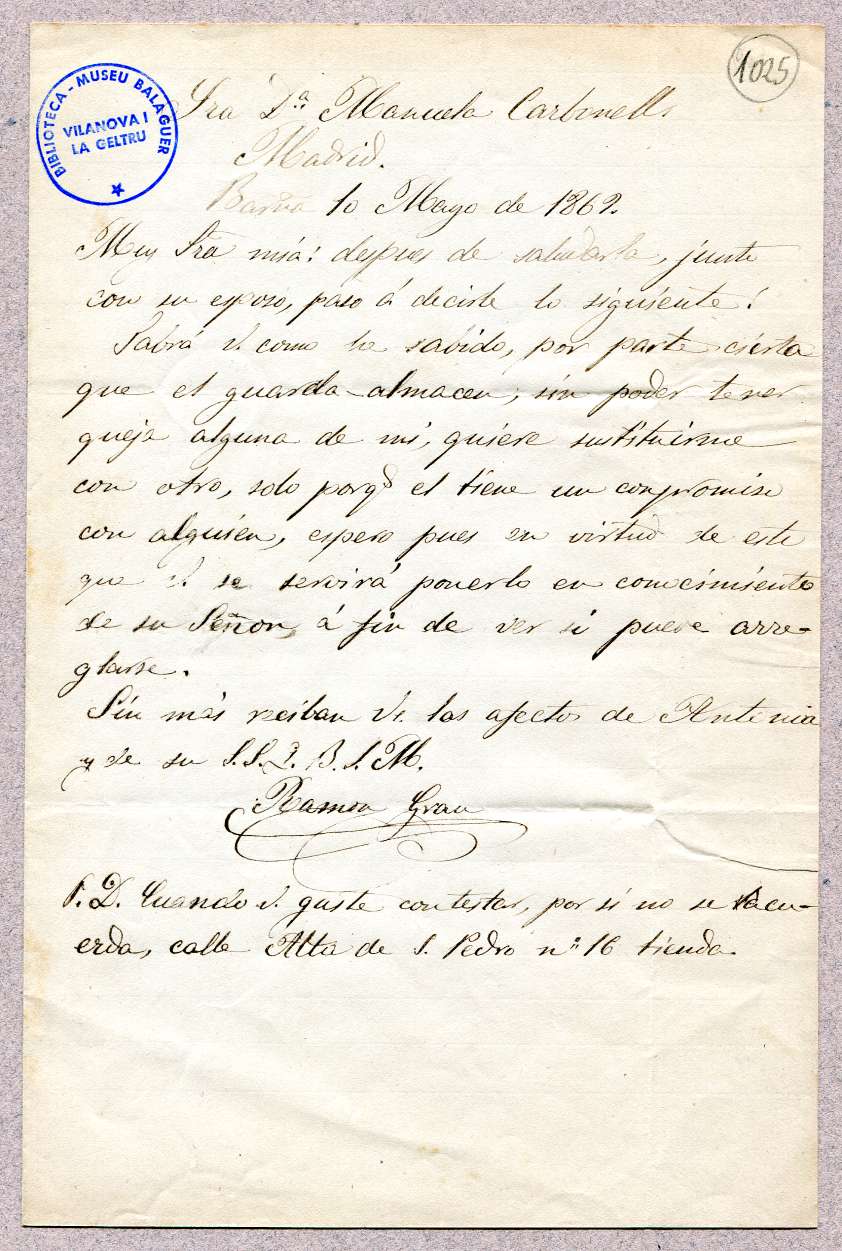 1025
BIBLIOTECA - MUSEU BALAGUER
VILANOVA I
LA GELTRU
Sra D.ª Manuela Carbonell
Madrid.
Barña 10 Mayo de 1869.
Muy Sra mia: despues de saludarla, junto
con su esposo, paso á decirle lo siguiente:
Sabrá V. como he sabido, por parte cierta
que el guarda-almacen, sin poder tener
queja alguna de mi, quiere sustituirme
con otro, solo porqe el tiene un compromiso
con alguien, espero pues en virtud de este
que V. se servirá ponerlo en conocimiento
de su Señor, á fin de ver si pueve arre-
glarse.
Sin más reciban Vs. los afectos de Antonia
y de su S.S.Q.B.S.M.
Ramon Grau
P.D. Cuando V. guste contestar, por si no se racu-
erda, calle Alta de S. Pedro nº 16 tienda.